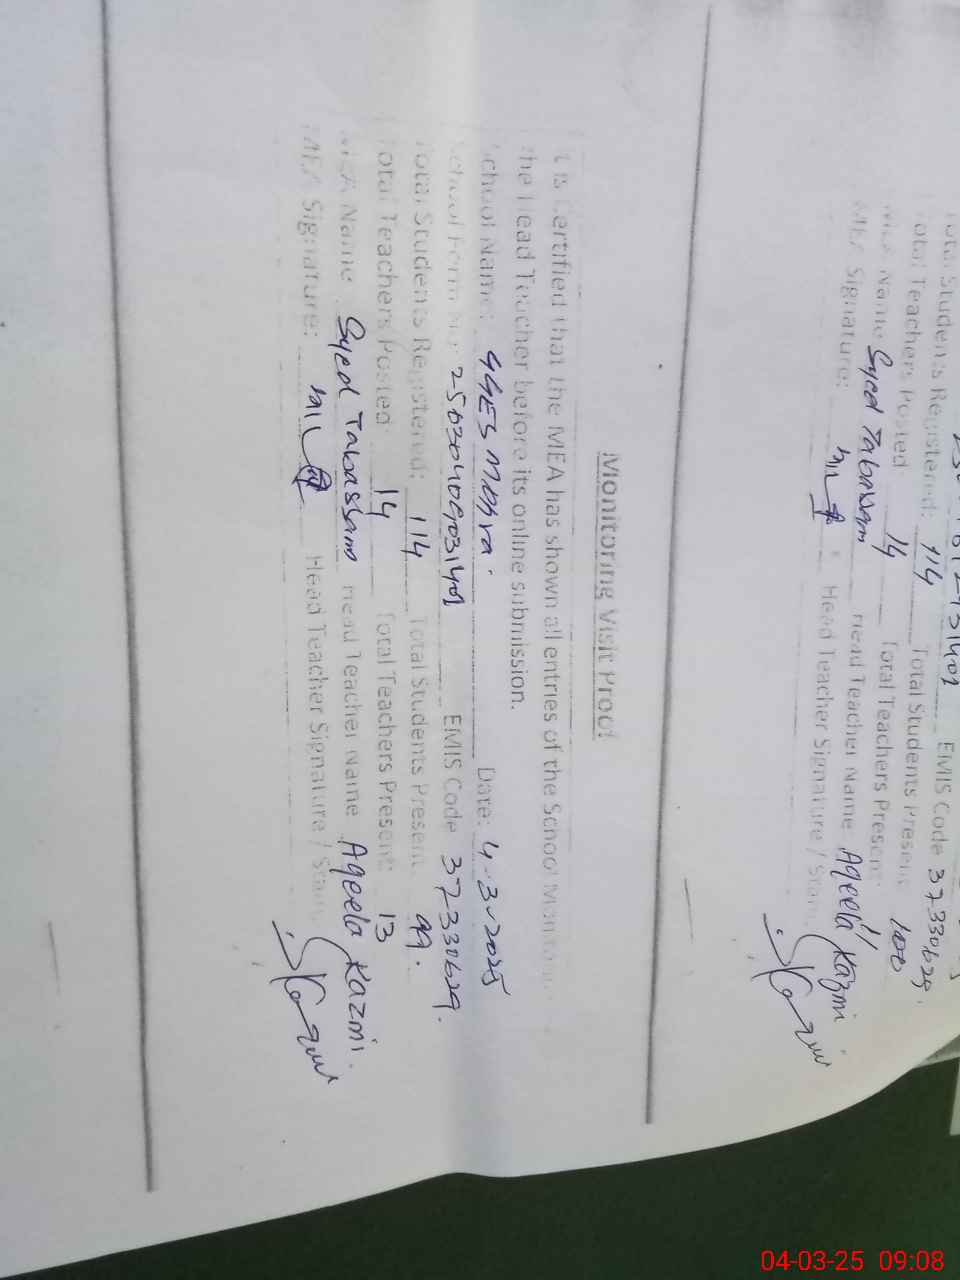 Total Students Registered: 114 Total Students Present 100
Total Teachers Posted 14 Total Teachers Present 11
MEA Name Syed Tabassam Head Teacher Name Aqeela Kazmi
MEA Signature: Head Teacher Signature / Stamp
EMIS Code 37330629.
Monitoring Visit Proof
It is Certified that the MEA has shown all entries of the School Monitoring
the Head Teacher before its online submission.
School Name: GGES Mohra Date: 4-3-2025
School Form No: EMIS Code 37330629.
Total Students Registered: 114 Total Students Present 99.
Total Teachers Posted 14 Total Teachers Present 13
MEA Name Syed Tabassam Head Teacher Name Aqeela Kazmi.
MEA Signature: Head Teacher Signature / Stamp
04-03-25 09:08